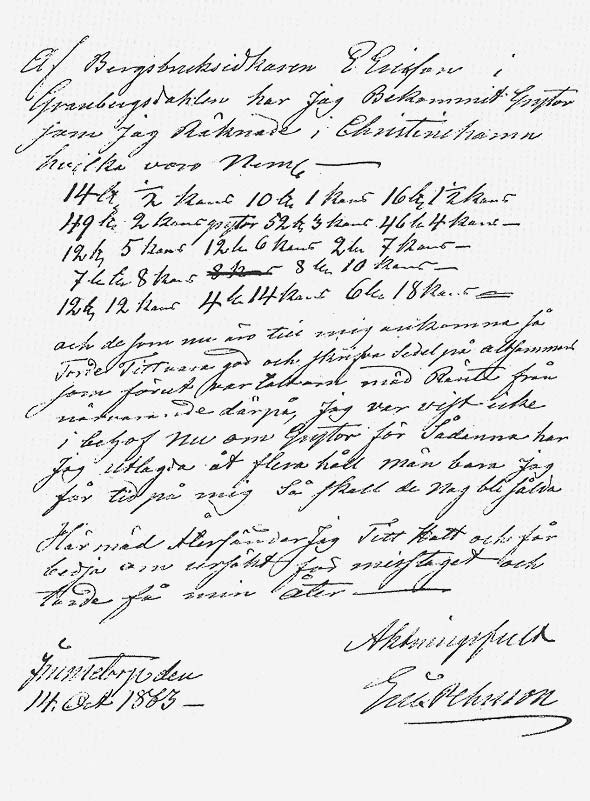 Af Bergsbruksidkaren P. Erikson i
Granbergsdahlen har Jag Bekommit Grytor
som Jag Räknade i Christinehamn
hvilka voro Neml
14 st ½ kans 10 st 1 kans 16 st 1½ kans
49 st 2 kans grytor 52 st 3 kans 46 st 4 kans —
12 st 5 kans 12 st 6 kans 2 st 7 kans —
7 st 8 kans 8 kans 8 st 10 kans —
12 st 12 kans 4 st 14 kans 6 st 18 kans
och de som nu äro till mig ankomna så
Torde Titt vara god och skrifva Sedel på altsammans
som förut var talat om mäd Ränta från
närvarande därpå, Jag var vist icke
i behof Nu om Grytor för Sådanna har
Jag utlagda åt flera håll män bara Jag
får tid på mig Så skall de Nog bli sålda
Här mäd Återsänder Jag Titt Hatt och får
bedja om ursäkt för misstaget och
torde få min åter
Aktningsfullt
den
14. Oct 1883 —
Eric Pehrson